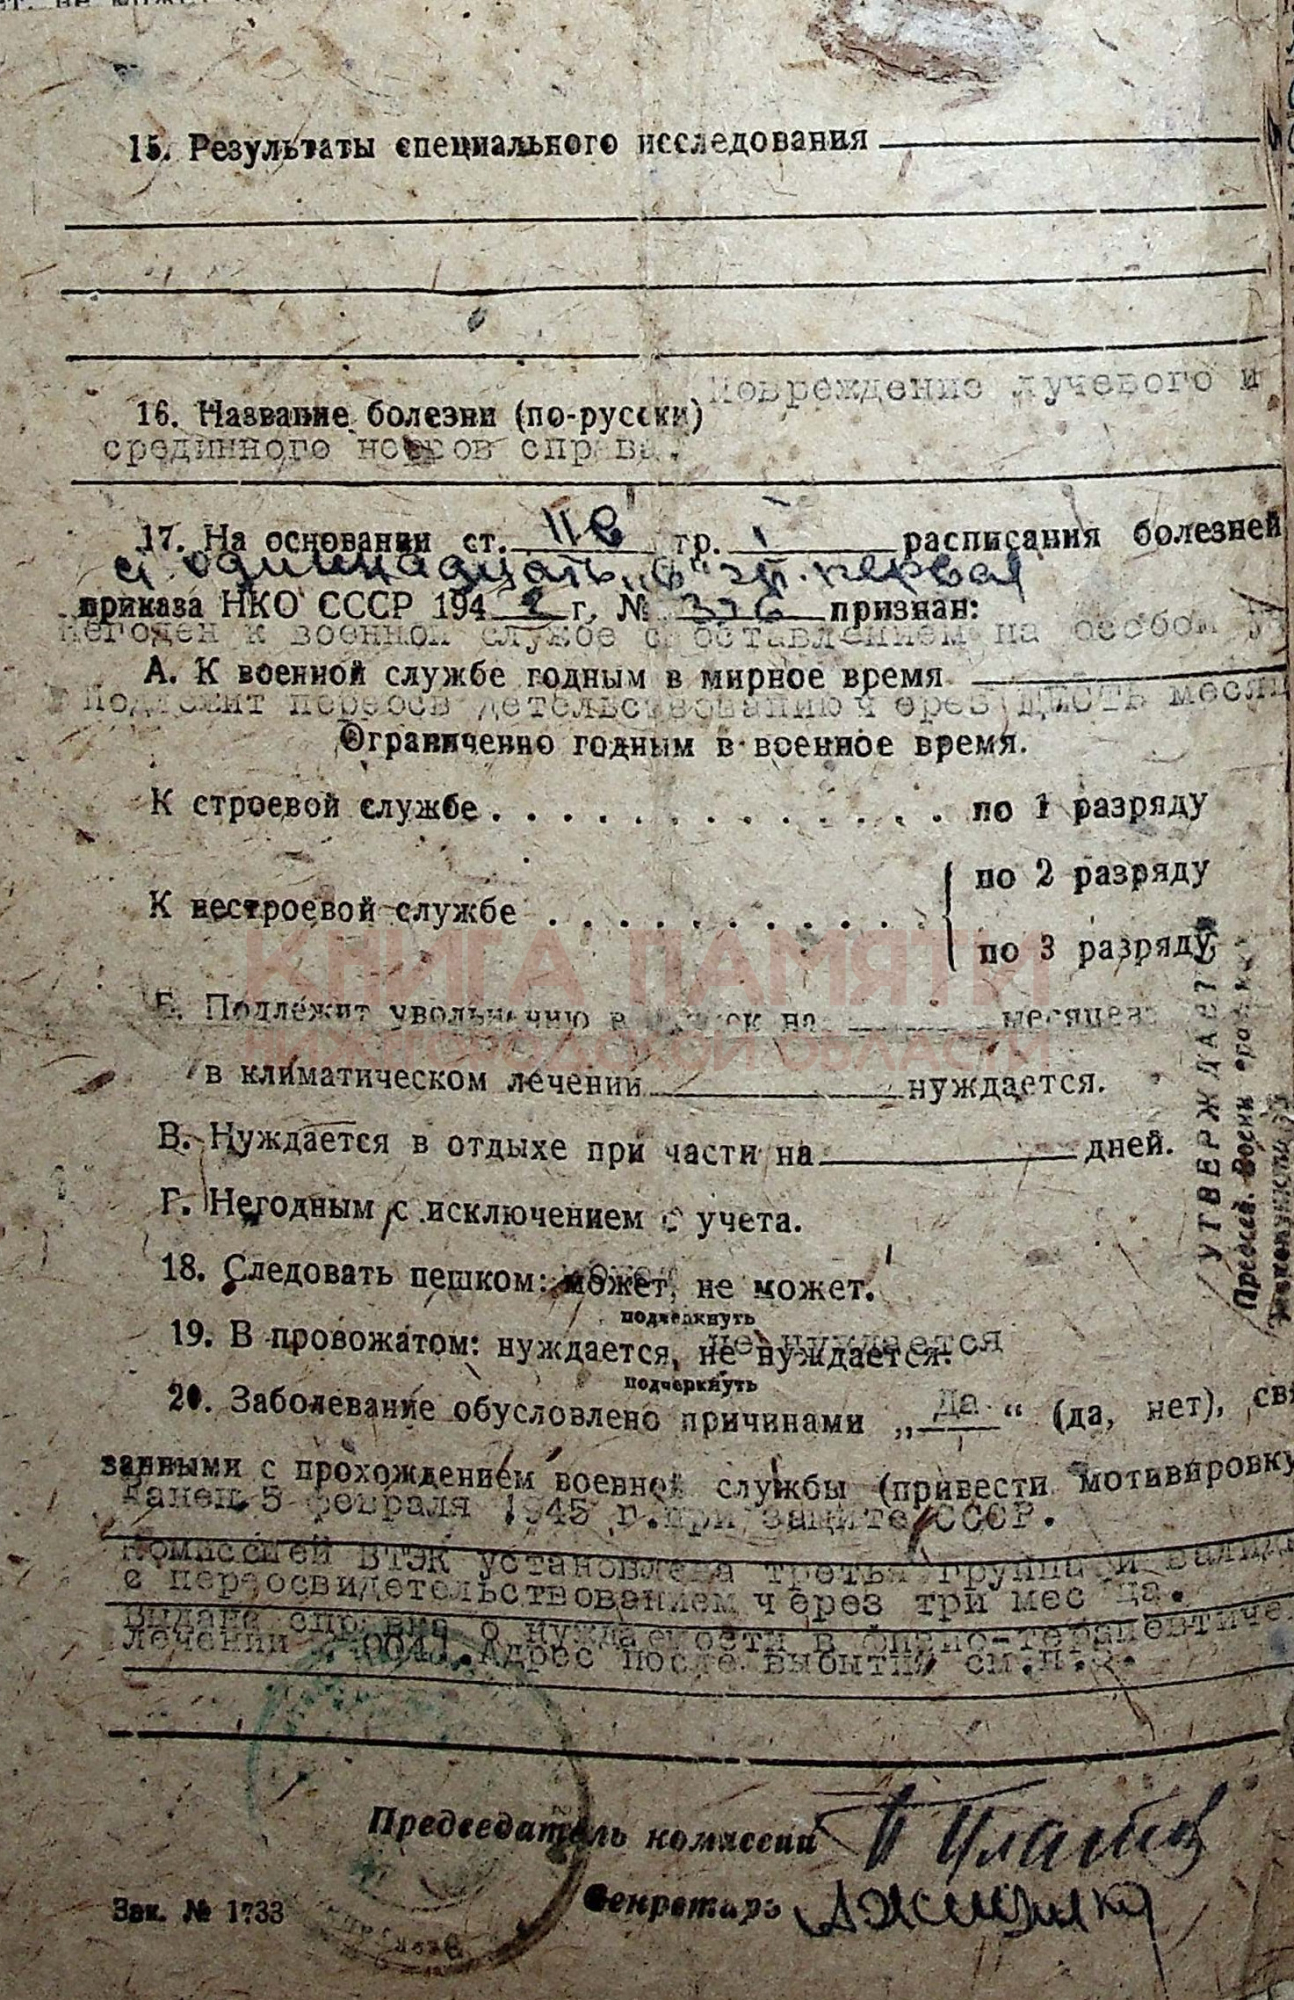 15. Результаты специального исследования
Повреждение лучевого и
16. Название болезни (по-русски)
срединного нервов справа.
17. На основании ст. 11в гр. I расписания болезней
ст одиннадцать „в" гр. первая
приказа НКО СССР 1942 г. № 336 признан:
негоден к военной службе с оставлением на особом
А. К военной службе годным в мирное время
Подлежит переосвидетельствованию через шесть месяц
Ограниченно годным в военное время.
К строевой службе . . . . . . . . . . . . . по 1 разряду
по 2 разряду
К нестроевой службе . . . . . . . . . . .
по 3 разряду
КНИГА ПАМЯТИ
Б. Подлежит увольнению в отпуск на месяцев
НИЖЕГОРОДСКОЙ ОБЛАСТИ
в климатическом лечении нуждается.
В. Нуждается в отдыхе при части на дней.
Г. Негодным с исключением с учета.
18. Следовать пешком: может, не может.
подчеркнуть
19. В провожатом: нуждается, не нуждается.
не нуждается
подчеркнуть
20. Заболевание обусловлено причинами „Да" (да, нет), свя
занными с прохождением военной службы (привести мотивировку
Ранен 5 февраля 1945 г. при защите СССР.
Комиссией ВТЭК установлена третья группа инвалид
с переосвидетельствованием через три месяца.
Выдана справка о нуждаемости в физио-терапевтиче
лечении Адрес после выбытия см.п.
Председатель комиссии
Секретарь
Зак. № 1733
УТВЕРЖДАЕТ
Председ. Воен